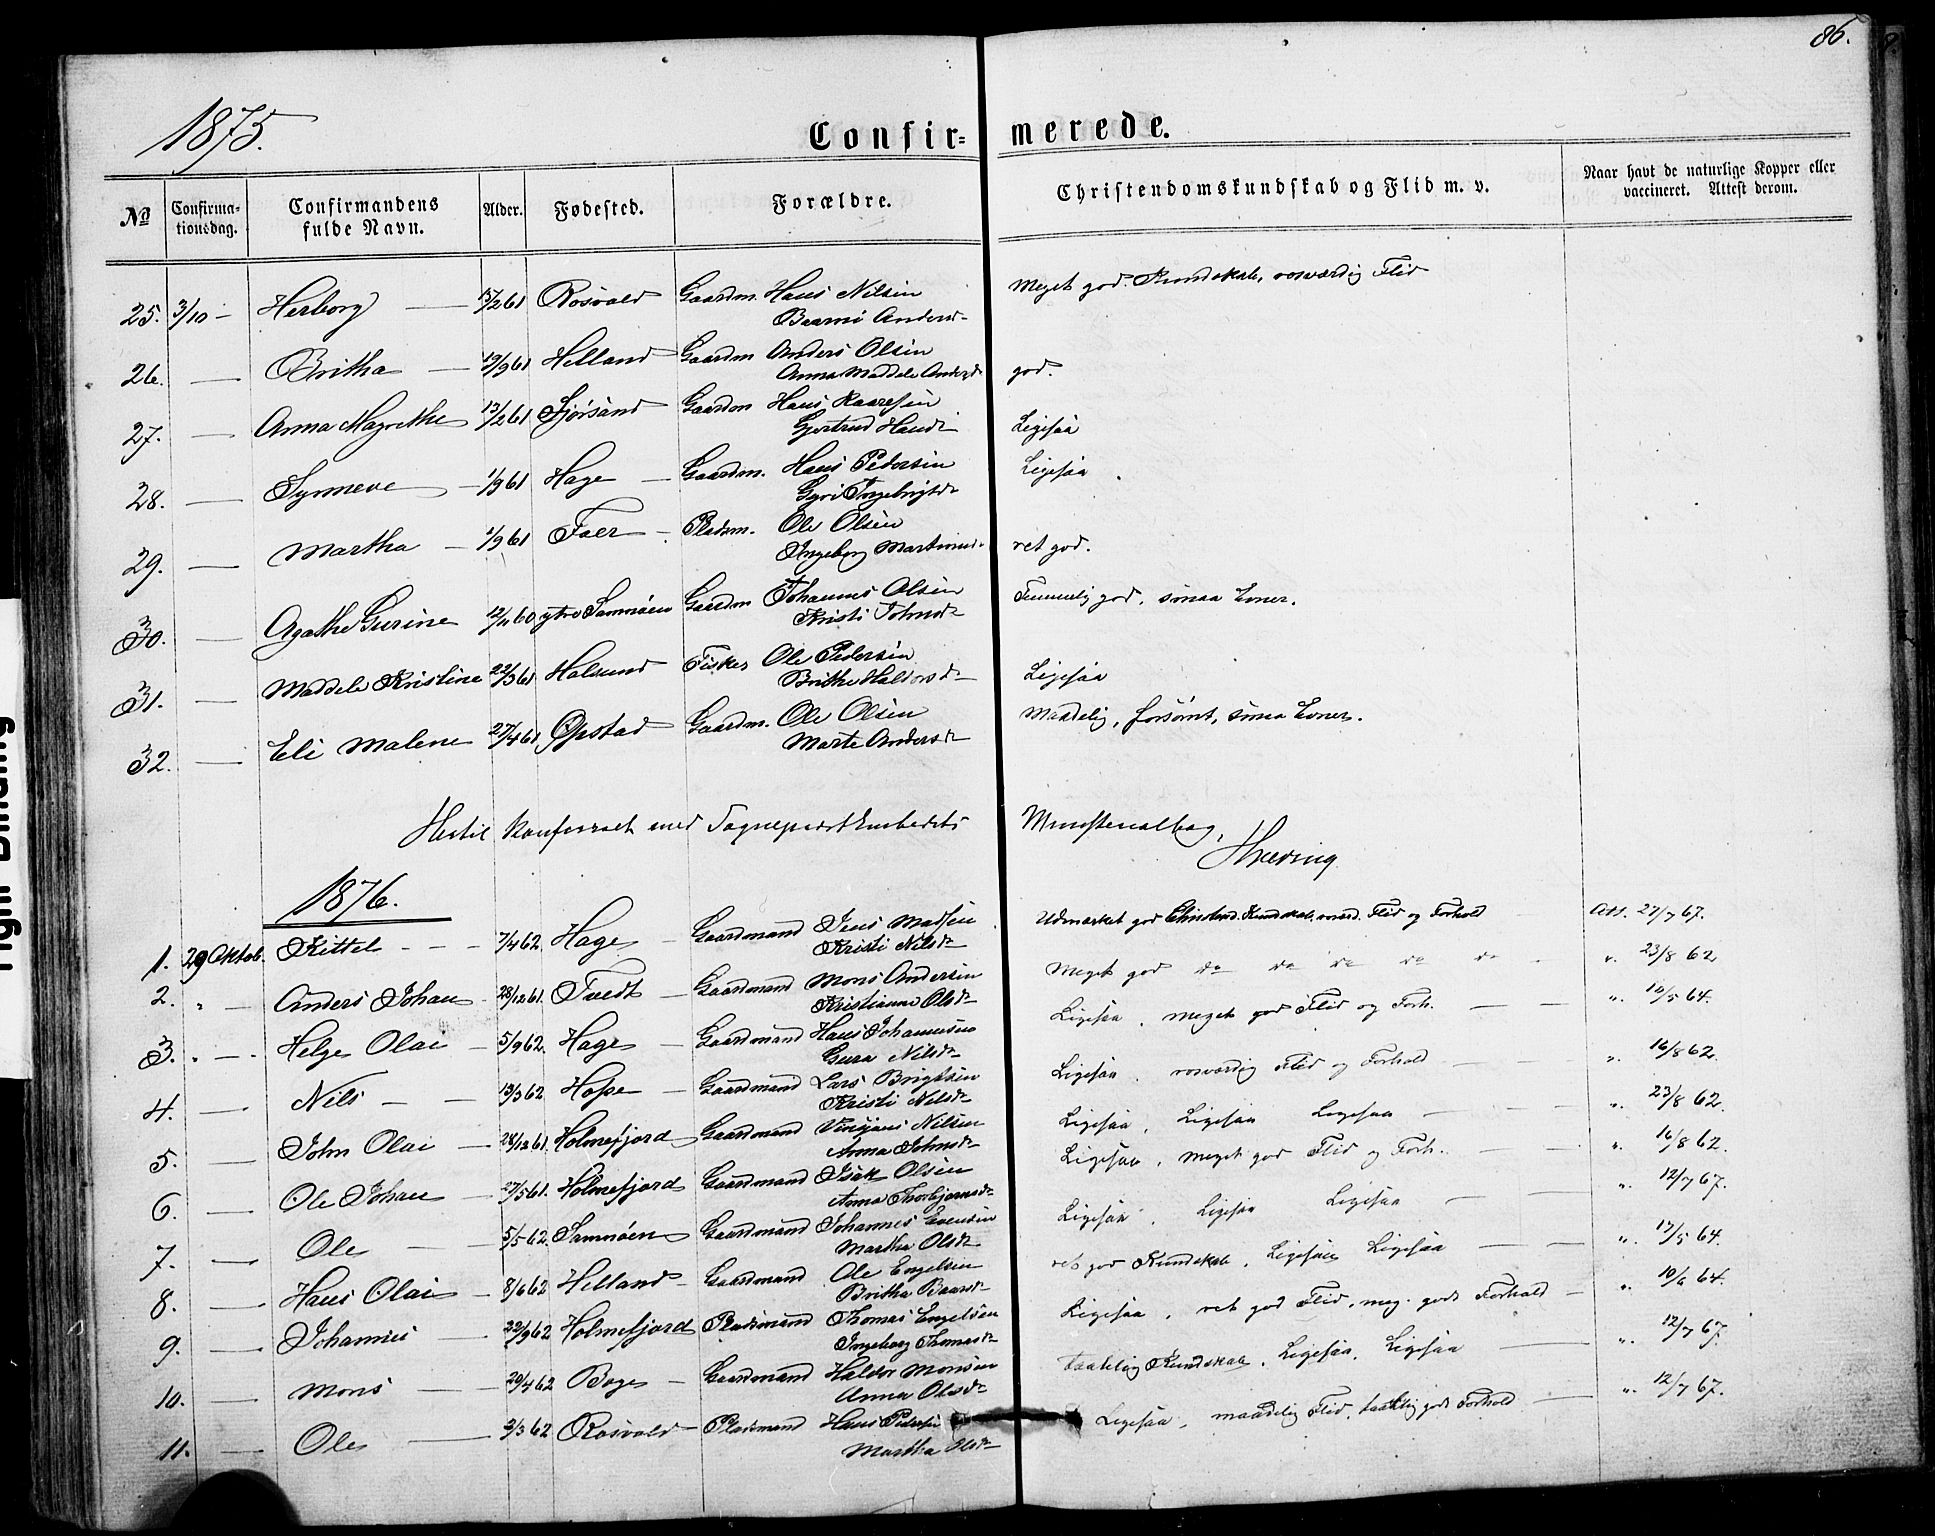 86.
1875.
Confir= merede.
No Confirma-tionsdag. Confirmandens fulde Navn. Alder. Fødested. Forældre. Christendomskundskab og Flid m. v. Naar havt de naturlige Kopper eller vaccineret. Attest derom.
25. 3/10 — Herborg — 15/2 61 Rosvold Gaardm. Hans Nilsen Meget god Kundskab, rosværdig Flid
Baarni Andersd.
26. — Britha — 19/9 61 Helland Gaardm Anders Olsen god.
Anna Maddele Andersd
27. — Anna Magrethe 13/2 61 Sjørsand Gaardm Hans Kaaresen Ligesaa
Gjertrud Hansd.
28. — Synneve — 1/9 61 Hage — Gaardm. Hans Pedersen Ligesaa
Gyri Ingebrigtsd.
29. — Martha — 1/9 61 Foer — Pladsm. Ole Olsen ret god.
Ingeborg Martinusd.
30. — Agathe Gurine 12/11 60 ytre Samnøen Gaardm Johannes Olsen Temmelig god, smaa Evner.
Kristi Johnsd.
31. — Maddele Kristine 22/3 61 Halsund Fisker Ole Pedersen Ligesaa
Brithe Haldorsd.
32. — Eli Malene 27/4 61 Øpstad Gaardm. Ole Olsen Maadelig, forsømt, smaa Evner.
Marte Andersd.
Hertil konfereret med Sognepræstembedets Ministerialbog,
Hvoslef
1876.
1. 29 Oktob. Kittel - - - 7/4 62. Hage — Gaardmand Jens Madsen Udmærket god Christend. Kundskab, Flid og Forhold — Att. 27/7 67.
Kristi Nilsd.
2. " — Anders Johan 28/12 61. Tvedt — Gaardmand Mons Andersen Meget god do do do do do — " 23/8 62
Kristianne Olsd.
3. " — Helge Olai — 5/9 62. Hage — Gaardmand Hans Johannesen Ligesaa, meget god Flid og Forh. — " 10/5 64.
Gura Nilsd.
4. — Nils — 13/3 62 Hope — Gaardmand Lars Brigtsen Ligesaa, rosværdig Flid og Forhold — " 16/8 62.
Kristi Nilsd.
5. — John Olai — 28/12 61. Holmefjord Gaardmand Vinjans Nilsen Ligesaa, Ligesaa Ligesaa — " 23/8 62.
Anna Johnsd.
6. — Ole Johan — 27/5 61. Holmefjord Gaardmand Isak Olsen Ligesaa, meget god Flid og Forh. — " 16/8 62.
Anna Thorbjørnsd.
7. — Ole — 5/5 62. Samnøen Gaardmand Johannes Evensen Ligesaa, Ligesaa Ligesaa — " 12/7 67.
Martha Olsd.
8. — Hans Olai — 8/6 62 Helland — Gaardmand Ole Engelsen ret god Kundskab, Ligesaa Ligesaa — " 17/5 64.
Britha Baarsd.
9. — Johannes — 22/9 62 Holmefjord Pladsmand Thomas Engelsen Ligesaa, ret god Flid, meg. godt Forhold — " 10/6 64.
Ingeborg Thomasd.
10. — Mons — 20/4 62 Boge — Gaardmand Haldor Monsen taalelig Kundskab, Ligesaa, Ligesaa — " 12/7 67.
Anna Olsd.
11. — Ole — 2/3 62 Rosvold — Pladsmand Hans Pedersen Ligesaa, maadelig Flid, taalelig godt Forhold — " 12/7 67.
Martha Olsd.